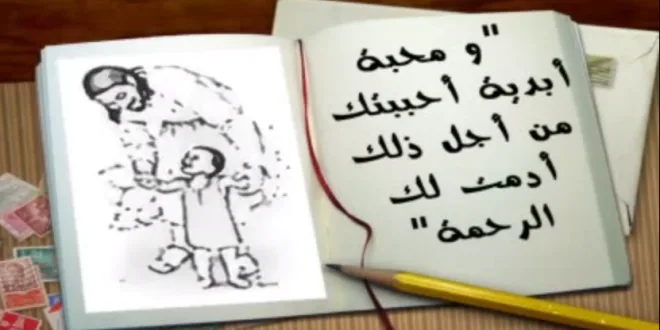 "و محبة
أبدية أحببتك
من أجل ذلك
أدمت لك
الرحمة"